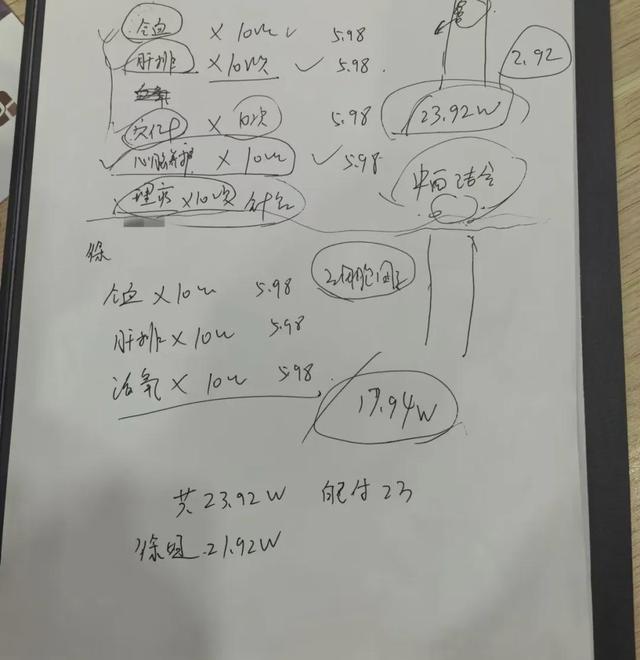 合血 ×10次 5.98
肝排 ×10次 5.98 2.92
×10次 5.98 23.92W
心脑养护 ×10次 5.98 中西结合
理疗 ×10次
徐
合血 ×10次 5.98
肝排 ×10次 5.98
活氧 ×10次 5.98 17.94W
共 23.92W 23
徐 21.92W